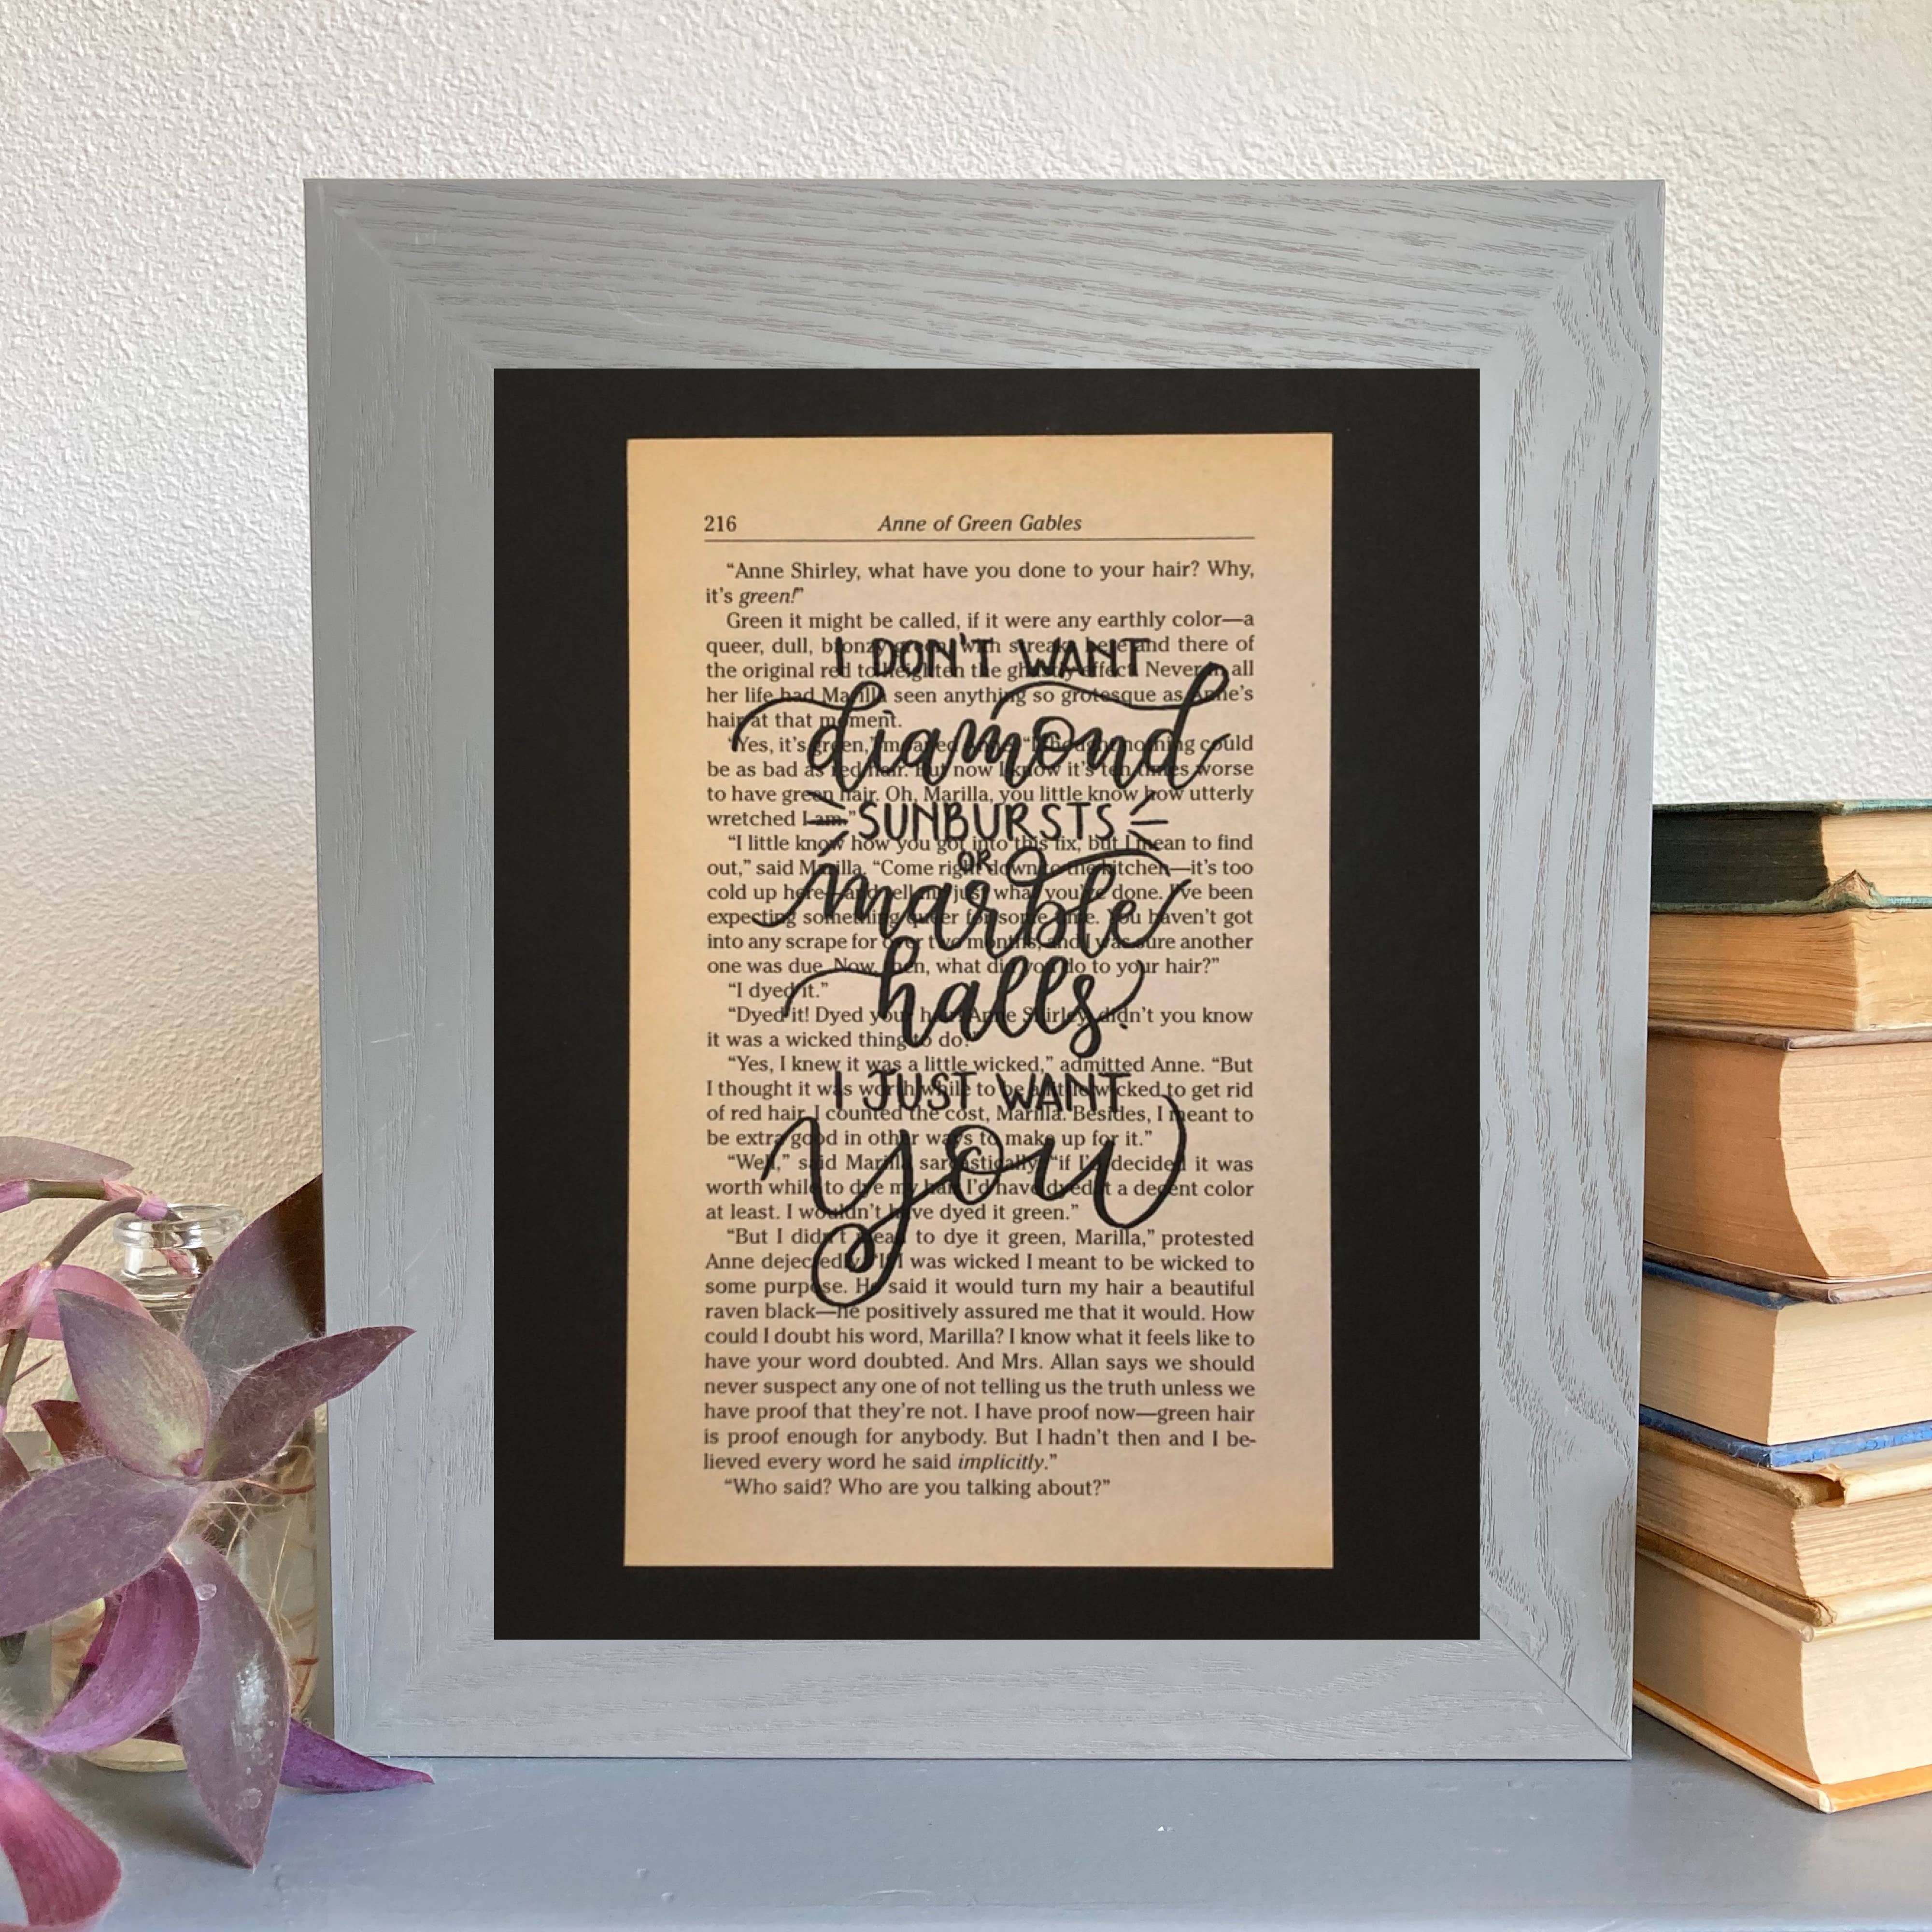 216 Anne of Green Gables
“Anne Shirley, what have you done to your hair? Why,
it's green!”
Green it might be called, if it were any earthly color—a
queer, dull, bronzy green, with streaks here and there of
the original red to heighten the ghastly effect. Never in all
her life had Marilla seen anything so grotesque as Anne's
hair at that moment.
“Yes, it's green,” moaned Anne. “I thought nothing could
be as bad as red hair. But now I know it's ten times worse
to have green hair. Oh, Marilla, you little know how utterly
wretched I am.”
“I little know how you got into this fix, but I mean to find
out,” said Marilla. “Come right down to the kitchen—it's too
cold up here—and tell me just what you've done. I've been
expecting something queer for some time. You haven't got
into any scrape for over two months, and I was sure another
one was due. Now, then, what did you do to your hair?”
“I dyed it.”
“Dyed it! Dyed your hair! Anne Shirley, didn't you know
it was a wicked thing to do?
“Yes, I knew it was a little wicked,” admitted Anne. “But
I thought it was worth while to be a little wicked to get rid
of red hair. I counted the cost, Marilla. Besides, I meant to
be extra good in other ways to make up for it.”
“Well,” said Marilla sarcastically, “if I'd decided it was
worth while to dye my hair I'd have dyed it a decent color
at least. I wouldn't have dyed it green.”
“But I didn't mean to dye it green, Marilla,” protested
Anne dejectedly. “If I was wicked I meant to be wicked to
some purpose. He said it would turn my hair a beautiful
raven black—he positively assured me that it would. How
could I doubt his word, Marilla? I know what it feels like to
have your word doubted. And Mrs. Allan says we should
never suspect any one of not telling us the truth unless we
have proof that they're not. I have proof now—green hair
is proof enough for anybody. But I hadn't then and I be-
lieved every word he said implicitly.”
“Who said? Who are you talking about?”
I DON'T WANT
diamond
SUNBURSTS
OR
marble
halls.
I JUST WANT
you